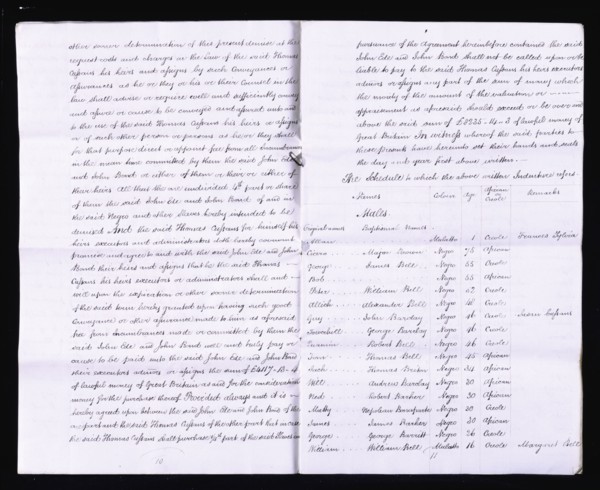 other sooner determination of this present demise at the
request costs and charges in the Law of the said Thomas
Cussans his heirs and assigns by such Conveyances or
Assurances as he or they or his or their Counsel in the
law shall advise or require well and sufficiently convey
and assure or cause to be conveyed and assured unto and
to the use of the said Thomas Cussans his heirs or assigns
or of such other person or persons as he or they shall
for that purpose direct or appoint free from all Incumbrances
in the mean time committed by them the said John Ede
and John Bond or either of them or their or either of
their heirs All that the one undivided 4th part or share
of them the said John Ede and John Bond of and in
the said Negro and other Slaves hereby intended to be
demised And the said Thomas Cussans for himself his
heirs executors and administrators doth hereby covenant
promise and agree to and with the said John Ede and John
Bond their heirs and assigns that he the said Thomas
Cussans his heirs executors or administrators shall and
will upon the expiration or other sooner determination
of the said term hereby granted upon having such good
Conveyance or other assurance made to him as aforesaid
free from incumbrances made or committed by them the
said John Ede and John Bond well and truly pay or
cause to be paid unto the said John Ede and John Bond
their executors admors or assigns the sum of
of lawful money of Great Britain as and for the consideration
money for the purchase thereof Provided always and it is
hereby agreed upon between the said John Ede and John Bond of the
one part and the said Thomas Cussans of the other part that in case
the said Thomas Cussans shall purchase 1/4th part of the said Slaves in
10
pursuance of the agreement hereinbefore contained the said
John Ede and John Bond shall not be called upon or be
liable to pay to the said Thomas Cussans his heirs executors
admors or assigns any part of the sum of money which
the moiety of the amount of the valuation or
appraisement as aforesaid should exceed or be over and
above the said sum of £8235-14-3 of lawful money of
Great Britain In witness whereof the said parties to
these presents have hereunto set their hands and seals
the day and year first above written
The Schedule to which the above written Indenture refers
Names Colour Age African or Creole Remarks
Males
Original names Baptismal Names
Mulatto 1 Creole Frances Sylvia
Cicero Major Brown Negro 75 African
George James Bell Negro 55 Creole
Bob Negro 55 African
Peter William Bell Negro 42 Creole
Allick Alexander Bell Negro 46 Creole
Guy John Barclay Negro 46 Creole Susan Cussans
George Barclay Negro 46 Creole
Robert Bell Negro 36 Creole
Thomas Bell Negro 45 African
Thomas Negro 34 African
Will Andrew Barclay Negro 30 African
Ned Robert Barker Negro 30 African
Napoleon Bonaparte Negro 30 Creole
James James Barker Negro 30 African
George George Barrett Negro 26 Creole
William William Bell Mulatto 16 Creole Margaret Bell
11